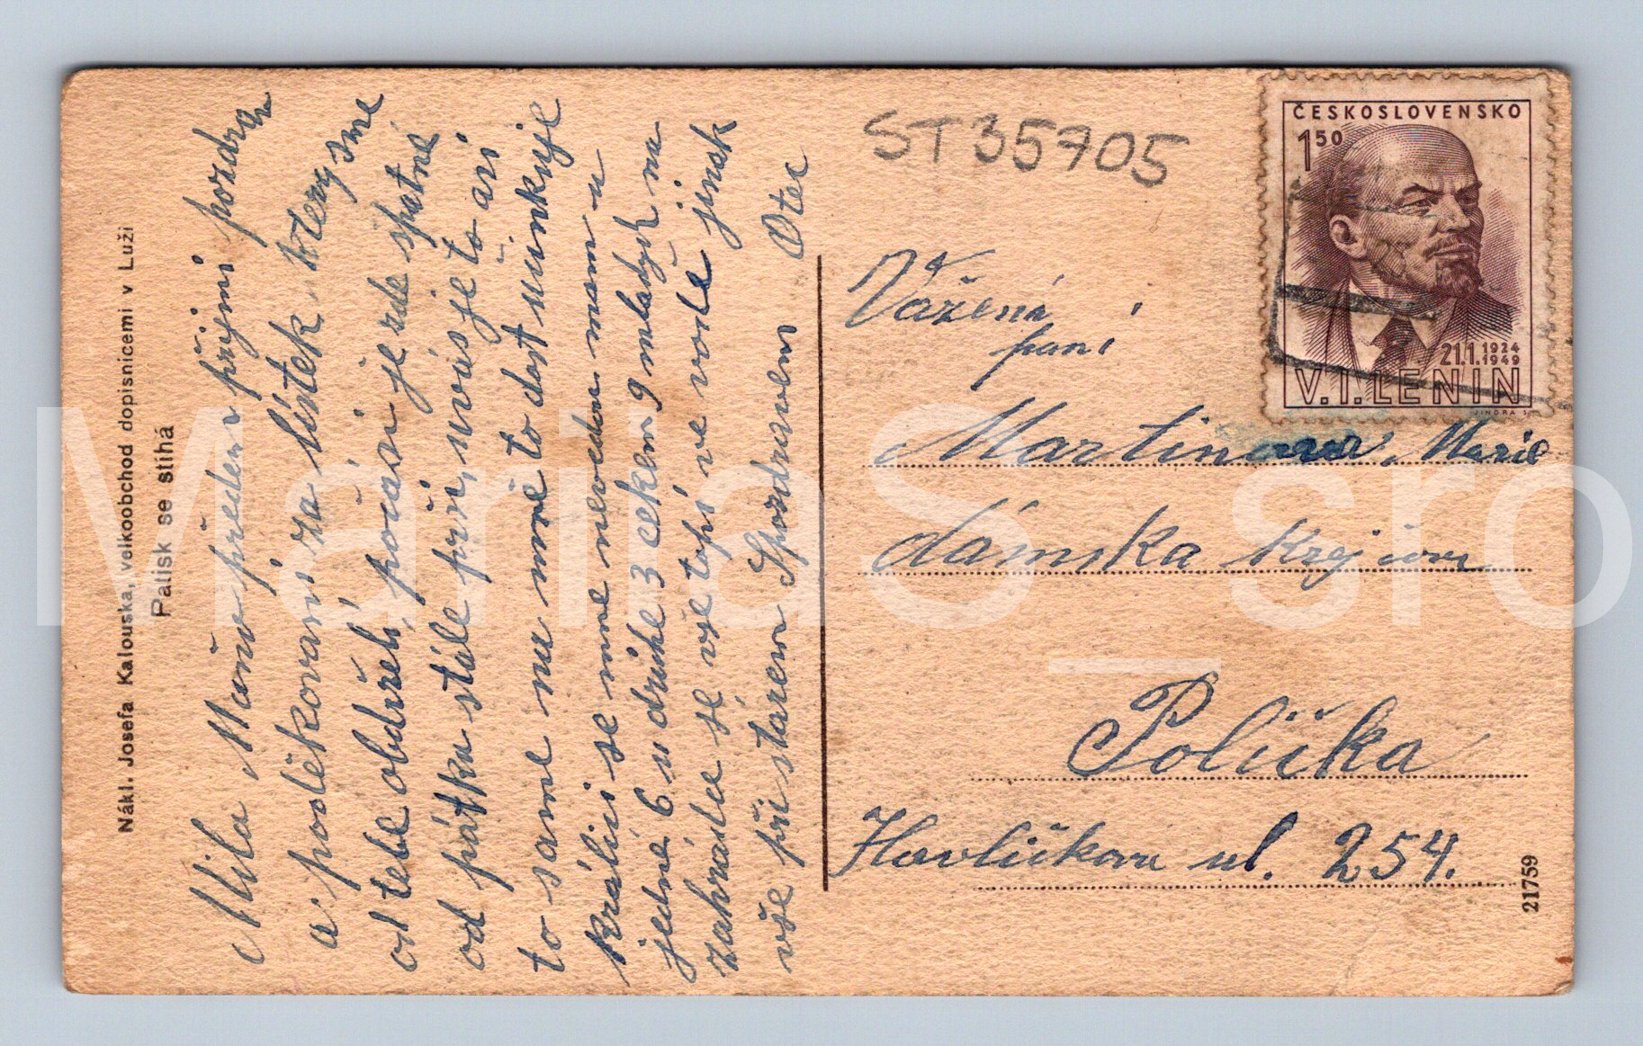 Nákl. Josefa Kalouska, velkoobchod dopisnicemi v Luži
Patisk se stíhá
Milá Mařno předem přijmi pozdrav
a poděkovani za lístek ktery sme
od tebe obdrželi, počasi je zde spatné
od pátku stále prši, u vás je to asi
to same na mně to dost učinkuje
králici se mne nevedou mam u
jedné 6 u druhé 3 celkem 9 mladych na
zahradce se vše topí ve vodě jinak
vše při stárem Spozdravem Otec
ST35705
ČESKOSLOVENSKO
1 50
21.1. 1924
1949
V. I. LENIN
JINDRA S
Vážená
paní
Martinova Marie
dámska Krejčova
Polička
Havličkova ul. 254.
21759
MariaS_sro